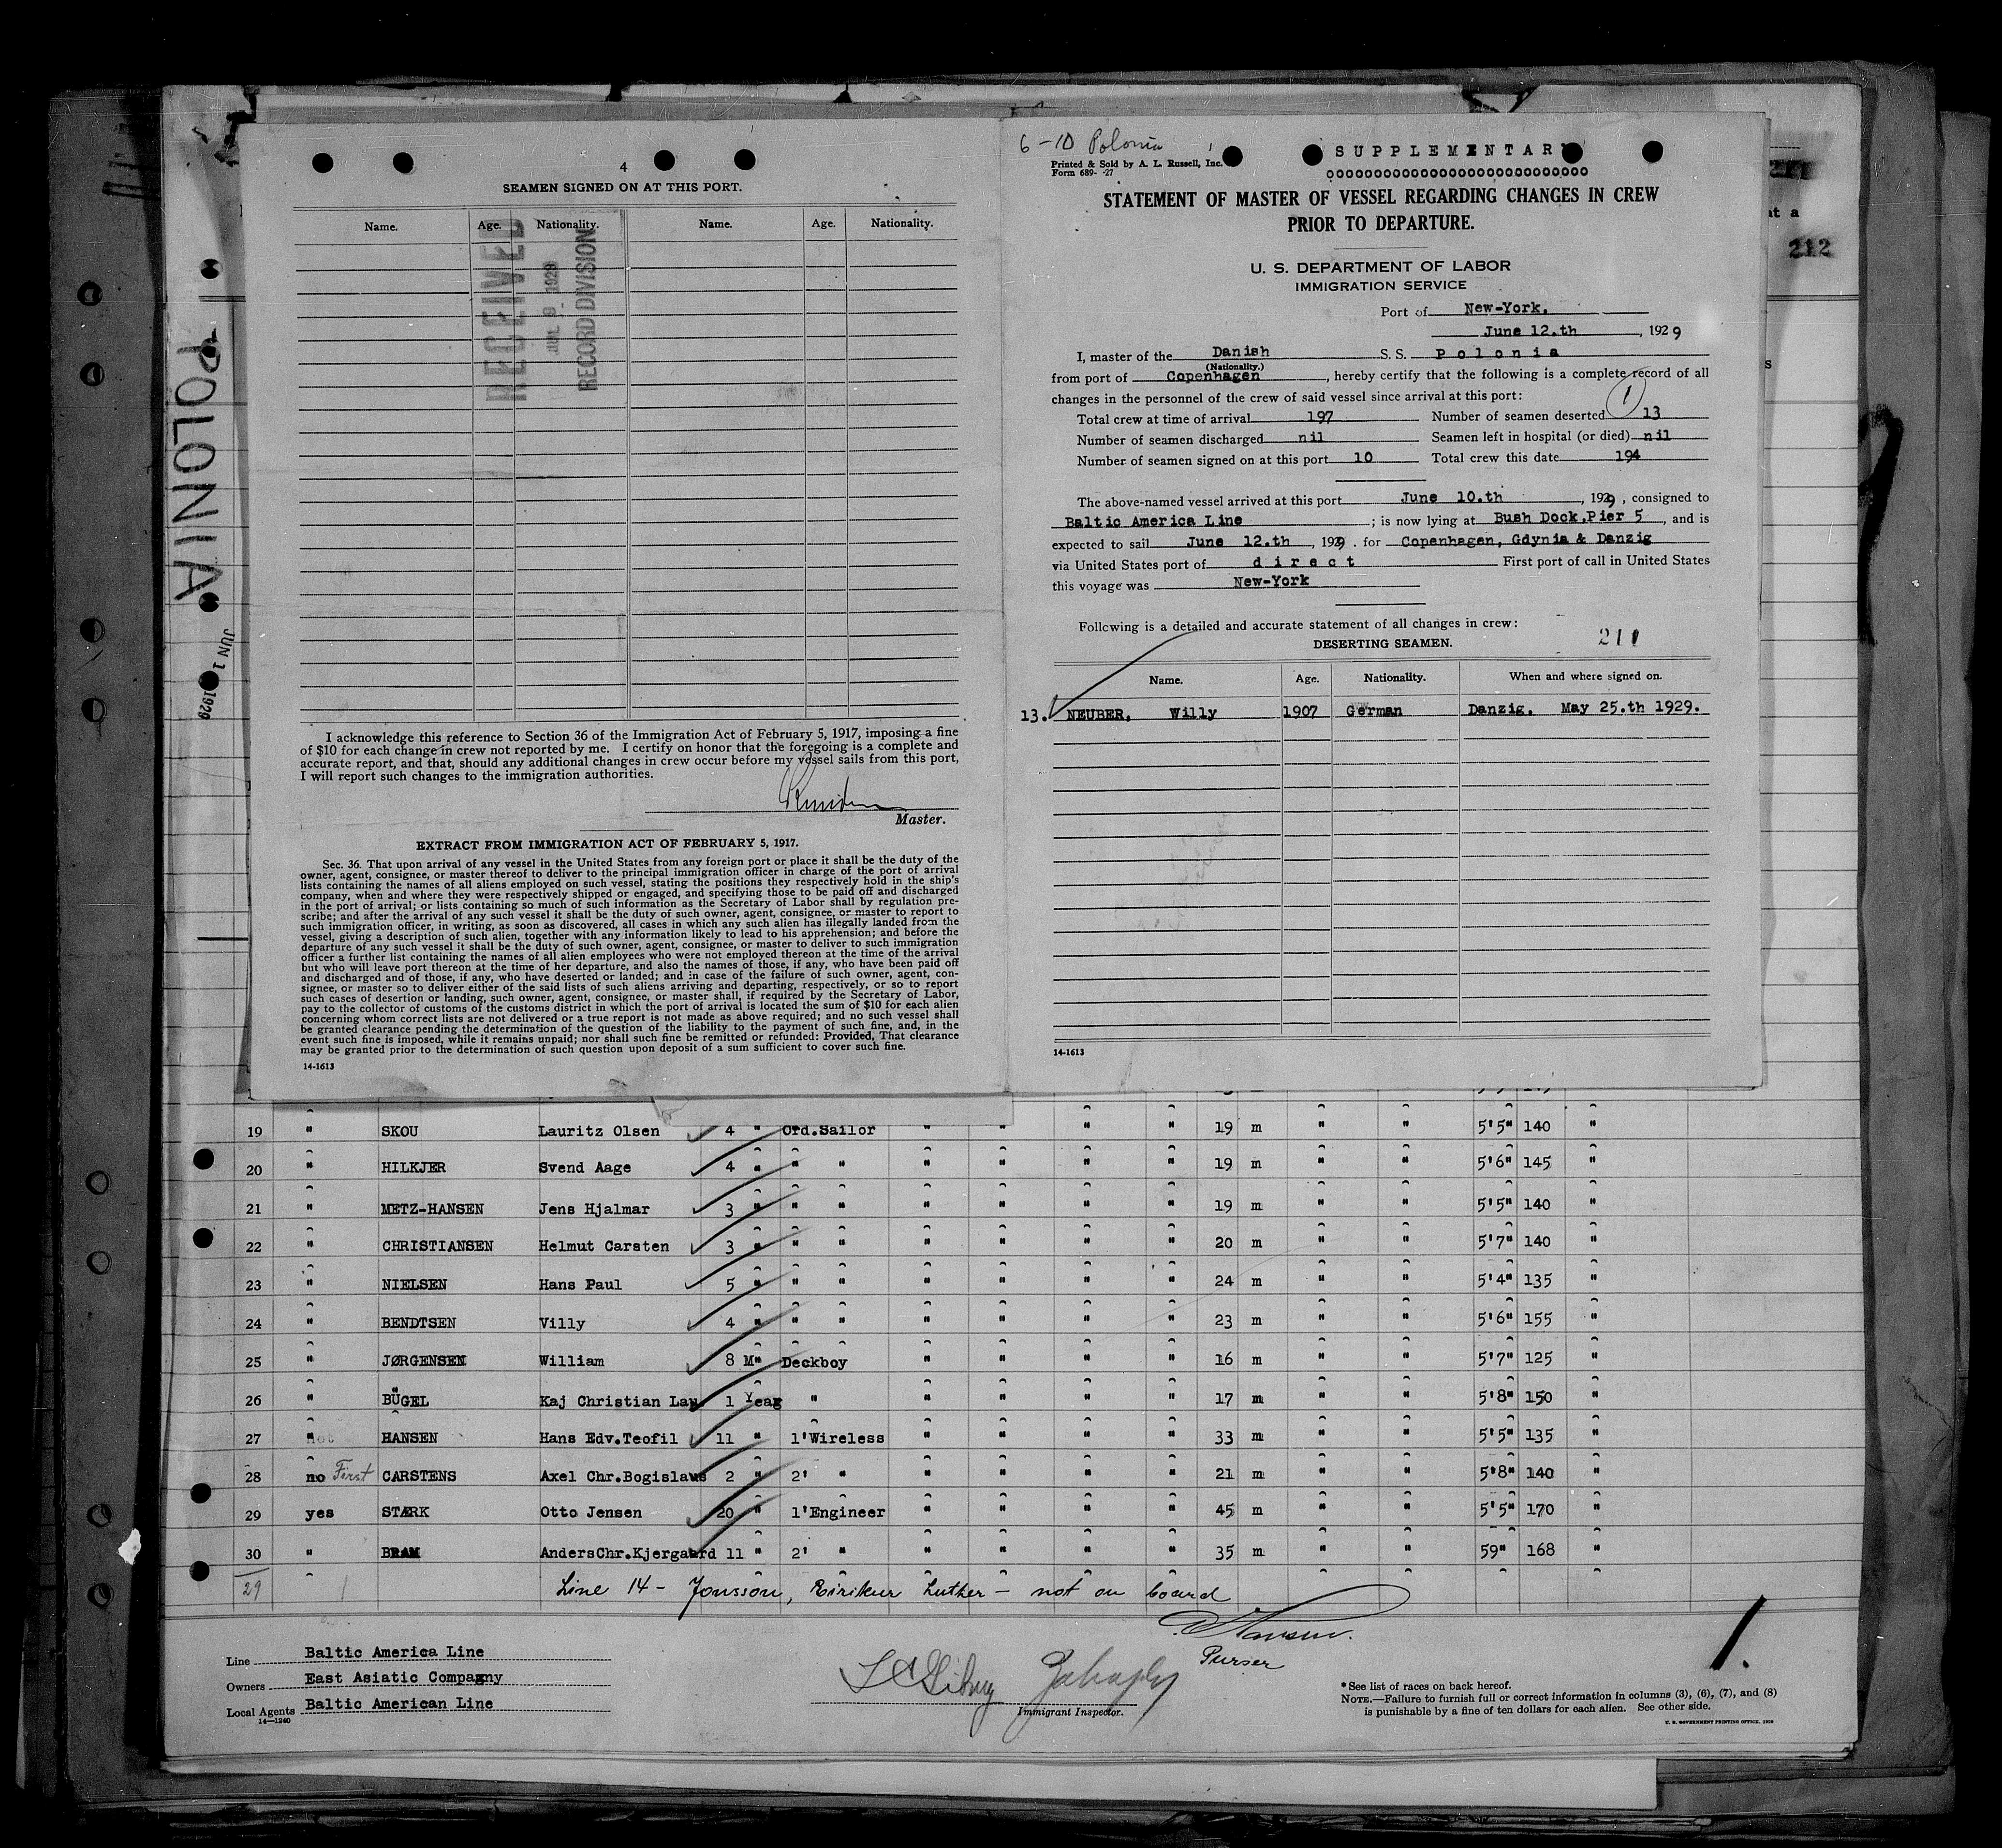 4
SEAMEN SIGNED ON AT THIS PORT.
Name. Age. Nationality. Name. Age. Nationality.
RECEIVED
JUL 9 - 1929
RECORD DIVISION
I acknowledge this reference to Section 36 of the Immigration Act of February 5, 1917, imposing a fine
of $10 for each change in crew not reported by me. I certify on honor that the foregoing is a complete and
accurate report, and that, should any additional changes in crew occur before my vessel sails from this port,
I will report such changes to the immigration authorities.
Master.
EXTRACT FROM IMMIGRATION ACT OF FEBRUARY 5, 1917.
Sec. 36. That upon arrival of any vessel in the United States from any foreign port or place it shall be the duty of the
owner, agent, consignee, or master thereof to deliver to the principal immigration officer in charge of the port of arrival
lists containing the names of all aliens employed on such vessel, stating the positions they respectively hold in the ship's
company, when and where they were respectively shipped or engaged, and specifying those to be paid off and discharged
in the port of arrival; or lists containing so much of such information as the Secretary of Labor shall by regulation pre-
scribe; and after the arrival of any such vessel it shall be the duty of such owner, agent, consignee, or master to report to
such immigration officer, in writing, as soon as discovered, all cases in which any such alien has illegally landed from the
vessel, giving a description of such alien, together with any information likely to lead to his apprehension; and before the
departure of any such vessel it shall be the duty of such owner, agent, consignee, or master to deliver to such immigration
officer a further list containing the names of all alien employees who were not employed thereon at the time of the arrival
but who will leave port thereon at the time of her departure, and also the names of those, if any, who have been paid off
and discharged and of those, if any, who have deserted or landed; and in case of the failure of such owner, agent, con-
signee, or master so to deliver either of the said lists of such aliens arriving and departing, respectively, or so to report
such cases of desertion or landing, such owner, agent, consignee, or master shall, if required by the Secretary of Labor,
pay to the collector of customs of the customs district in which the port of arrival is located the sum of $10 for each alien
concerning whom correct lists are not delivered or a true report is not made as above required; and no such vessel shall
be granted clearance pending the determination of the question of the liability to the payment of such fine, and, in the
event such fine is imposed, while it remains unpaid; nor shall such fine be remitted or refunded: Provided, That clearance
may be granted prior to the determination of such question upon deposit of a sum sufficient to cover such fine.
14-1613
6-10 Polonia
Printed & Sold by A. L. Russell, Inc.
Form 689- -27
SUPPLEMENTARY
STATEMENT OF MASTER OF VESSEL REGARDING CHANGES IN CREW
PRIOR TO DEPARTURE.
U. S. DEPARTMENT OF LABOR
IMMIGRATION SERVICE
Port of New-York.
June 12.th, 1929
I, master of the Danish S. S. Polonia
(Nationality.)
from port of Copenhagen, hereby certify that the following is a complete record of all
changes in the personnel of the crew of said vessel since arrival at this port:
Total crew at time of arrival 197 Number of seamen deserted 1 13
Number of seamen discharged nil Seamen left in hospital (or died) nil
Number of seamen signed on at this port 10 Total crew this date 194
The above-named vessel arrived at this port June 10.th, 1929, consigned to
Baltic America Line; is now lying at Bush Dock,Pier 5, and is
expected to sail June 12.th, 1929. for Copenhagen, Gdynia & Danzig
via United States port of direct First port of call in United States
this voyage was New-York
Following is a detailed and accurate statement of all changes in crew:
DESERTING SEAMEN. 211
Name. Age. Nationality. When and where signed on.
13. NEUBER, Willy 1907 German Danzig, May 25.th 1929.
14-1613
at a
212
s
POLONIA
JUN 1 1929
19 " SKOU Lauritz Olsen 4 " Ord.Sailor " " " " 19 m " " 5'5" 140 "
20 " HILKJER Svend Aage 4 " " " " " " " 19 m " " 5'6" 145 "
21 " METZ-HANSEN Jens Hjalmar 3 " " " " " " " 19 m " " 5'5" 140 "
22 " CHRISTIANSEN Helmut Carsten 3 " " " " " " " 20 m " " 5'7" 140 "
23 " NIELSEN Hans Paul 5 " " " " " " " 24 m " " 5'4" 135 "
24 " BENDTSEN Villy 4 " " " " " " " 23 m " " 5'6" 155 "
25 " JØRGENSEN William 8 M" Deckboy " " " " 16 m " " 5'7" 125 "
26 " BÜGEL Kaj Christian Lau 1 Year " " " " " 17 m " " 5'8" 150 "
27 " HANSEN Hans Edv.Teofil 11 " 1'Wireless " " " " 33 m " " 5'5" 135 "
28 no First CARSTENS Axel Chr.Bogislaus 2 " 2' " " " " " 21 m " " 5'8" 140 "
29 yes STÆRK Otto Jensen 20 " 1'Engineer " " " " 45 m " " 5'5" 170 "
30 " BRAM AndersChr.Kjergaard 11 " 2' " " " " " 35 m " " 59" 168 "
29 1 Line 14 - Jonsson, Eirikur Luther - not on board
Hansen.
Purser
1.
Line Baltic America Line
Owners East Asiatic Compagny
Local Agents Baltic American Line
14-1240
Immigrant Inspector.
*See list of races on back hereof.
NOTE.—Failure to furnish full or correct information in columns (3), (6), (7), and (8)
is punishable by a fine of ten dollars for each alien. See other side.
U. S. GOVERNMENT PRINTING OFFICE. 1928